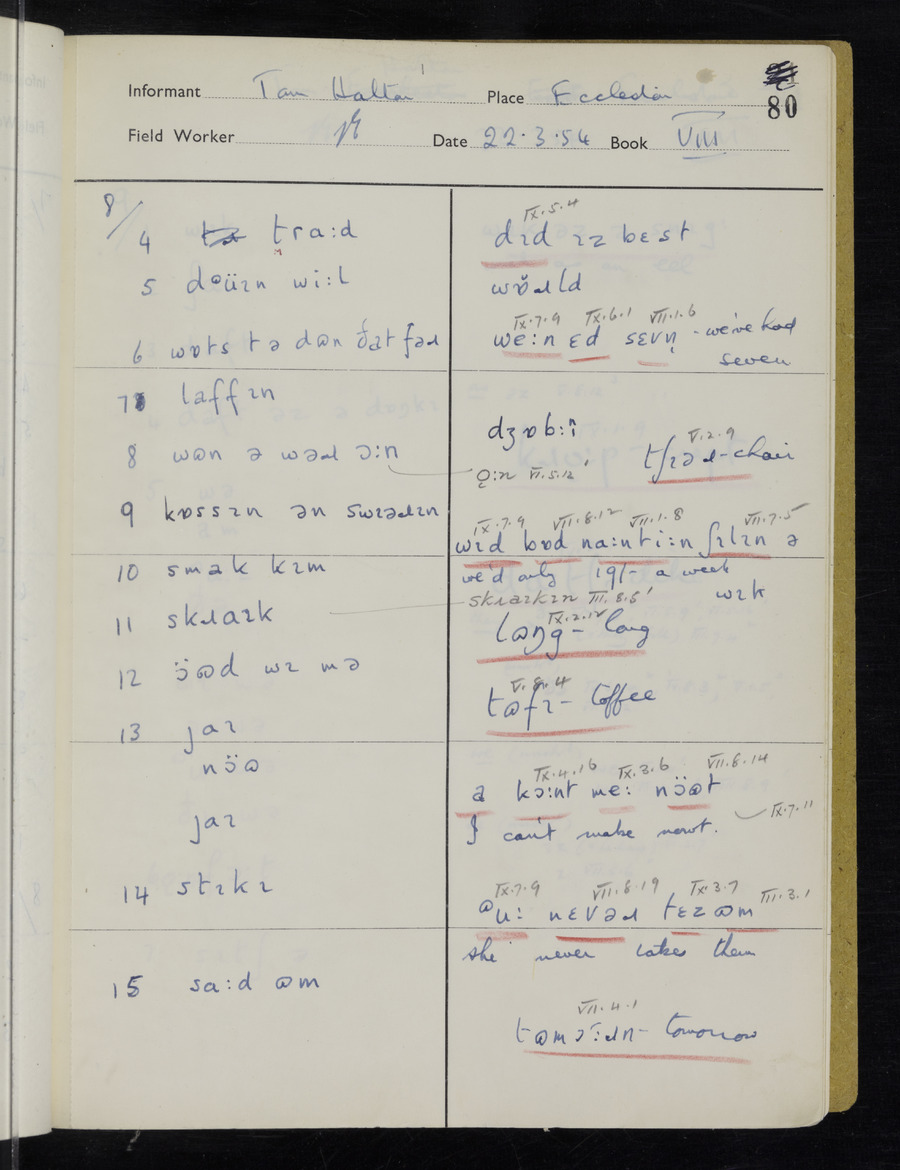 Informant Tom Halton Place Eccleston
80
Field Worker Date 22.3.54 Book VIII
8/
4 tra:d
5 dɵüɪn wi:l
6 wɒts tə dɷn ðat fəɹ
7 laffɪn
8 wɷn ə wəɹ ɔ:n
9 kɒssɪn ən swɪəɹɪn
10 smak kɪm
11 skɹaɪk
12 ɔ̈ɷd wɪ mə
13 jaɪ
nɔ̈ɷ
jaɪ
14 stɪkɪ
15 sa:d ɷm
IX.5.4
dɪd ɪz bɛst
wɒ̈ɹld
IX.7.9 IX.6.1 VII.1.6
we:n ɛd sɛvn̩ - we've had
seven
dʒɒb:ï
V.2.9
ɔ̣:n VI.5.12 tʃɪəɹ-chair
IX.7.9 VII.8.12 VII.1.8 VII.7.5
wɪd bɒd na:nti:n ʃɪlɪn ə
we'd only 19/- a week
wɪk
skɹaɪkɪn III.8.5
IX.2.12
lɷŋg - long
V.8.4
tɷfɪ - toffee
IX.4.16 IX.3.6 VII.8.14
a kɔ:nt me: nɔ̈ɷt
I can't make nowt. IX.7.11
IX.7.9 VII.8.19 IX.3.7 III.3.1
ɷu: nɛvəɹ tɛz ɷm
she never takes them
VII.4.1
tomorrow